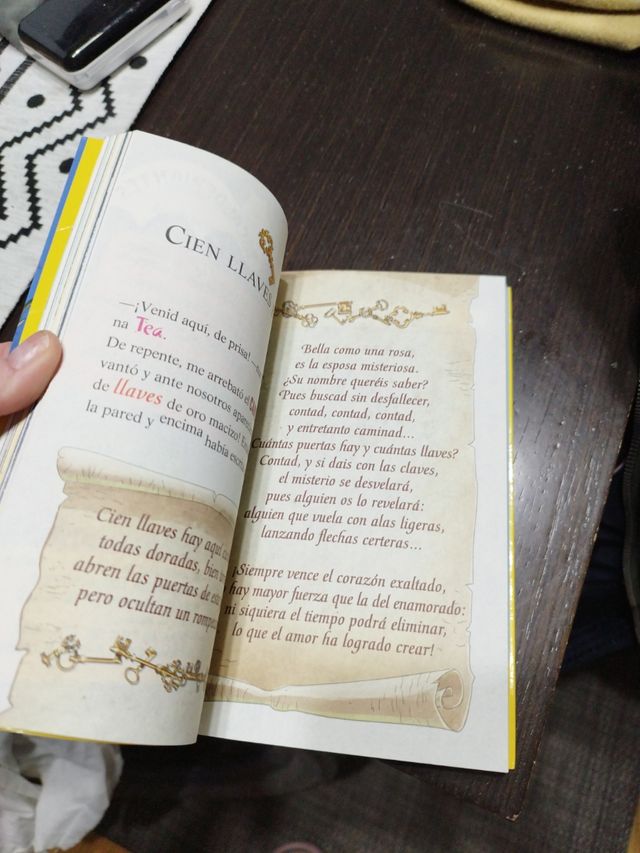 CIEN LLAVES
—¡Venid aquí, de prisa! —
na Tea.
De repente, me arrebató el
vantó y ante nosotros
de llaves de oro macizo!
la pared y encima había
Cien llaves hay aquí
todas doradas, bien
abren las puertas de
pero ocultan un
Bella como una rosa,
es la esposa misteriosa.
¿Su nombre queréis saber?
Pues buscad sin desfallecer,
contad, contad, contad,
y entretanto caminad...
Cuántas puertas hay y cuántas llaves?
Contad, y si dais con las claves,
el misterio se desvelará,
pues alguien os lo revelará:
alguien que vuela con alas ligeras,
lanzando flechas certeras...
¡Siempre vence el corazón exaltado,
hay mayor fuerza que la del enamorado:
ni siquiera el tiempo podrá eliminar,
lo que el amor ha logrado crear!